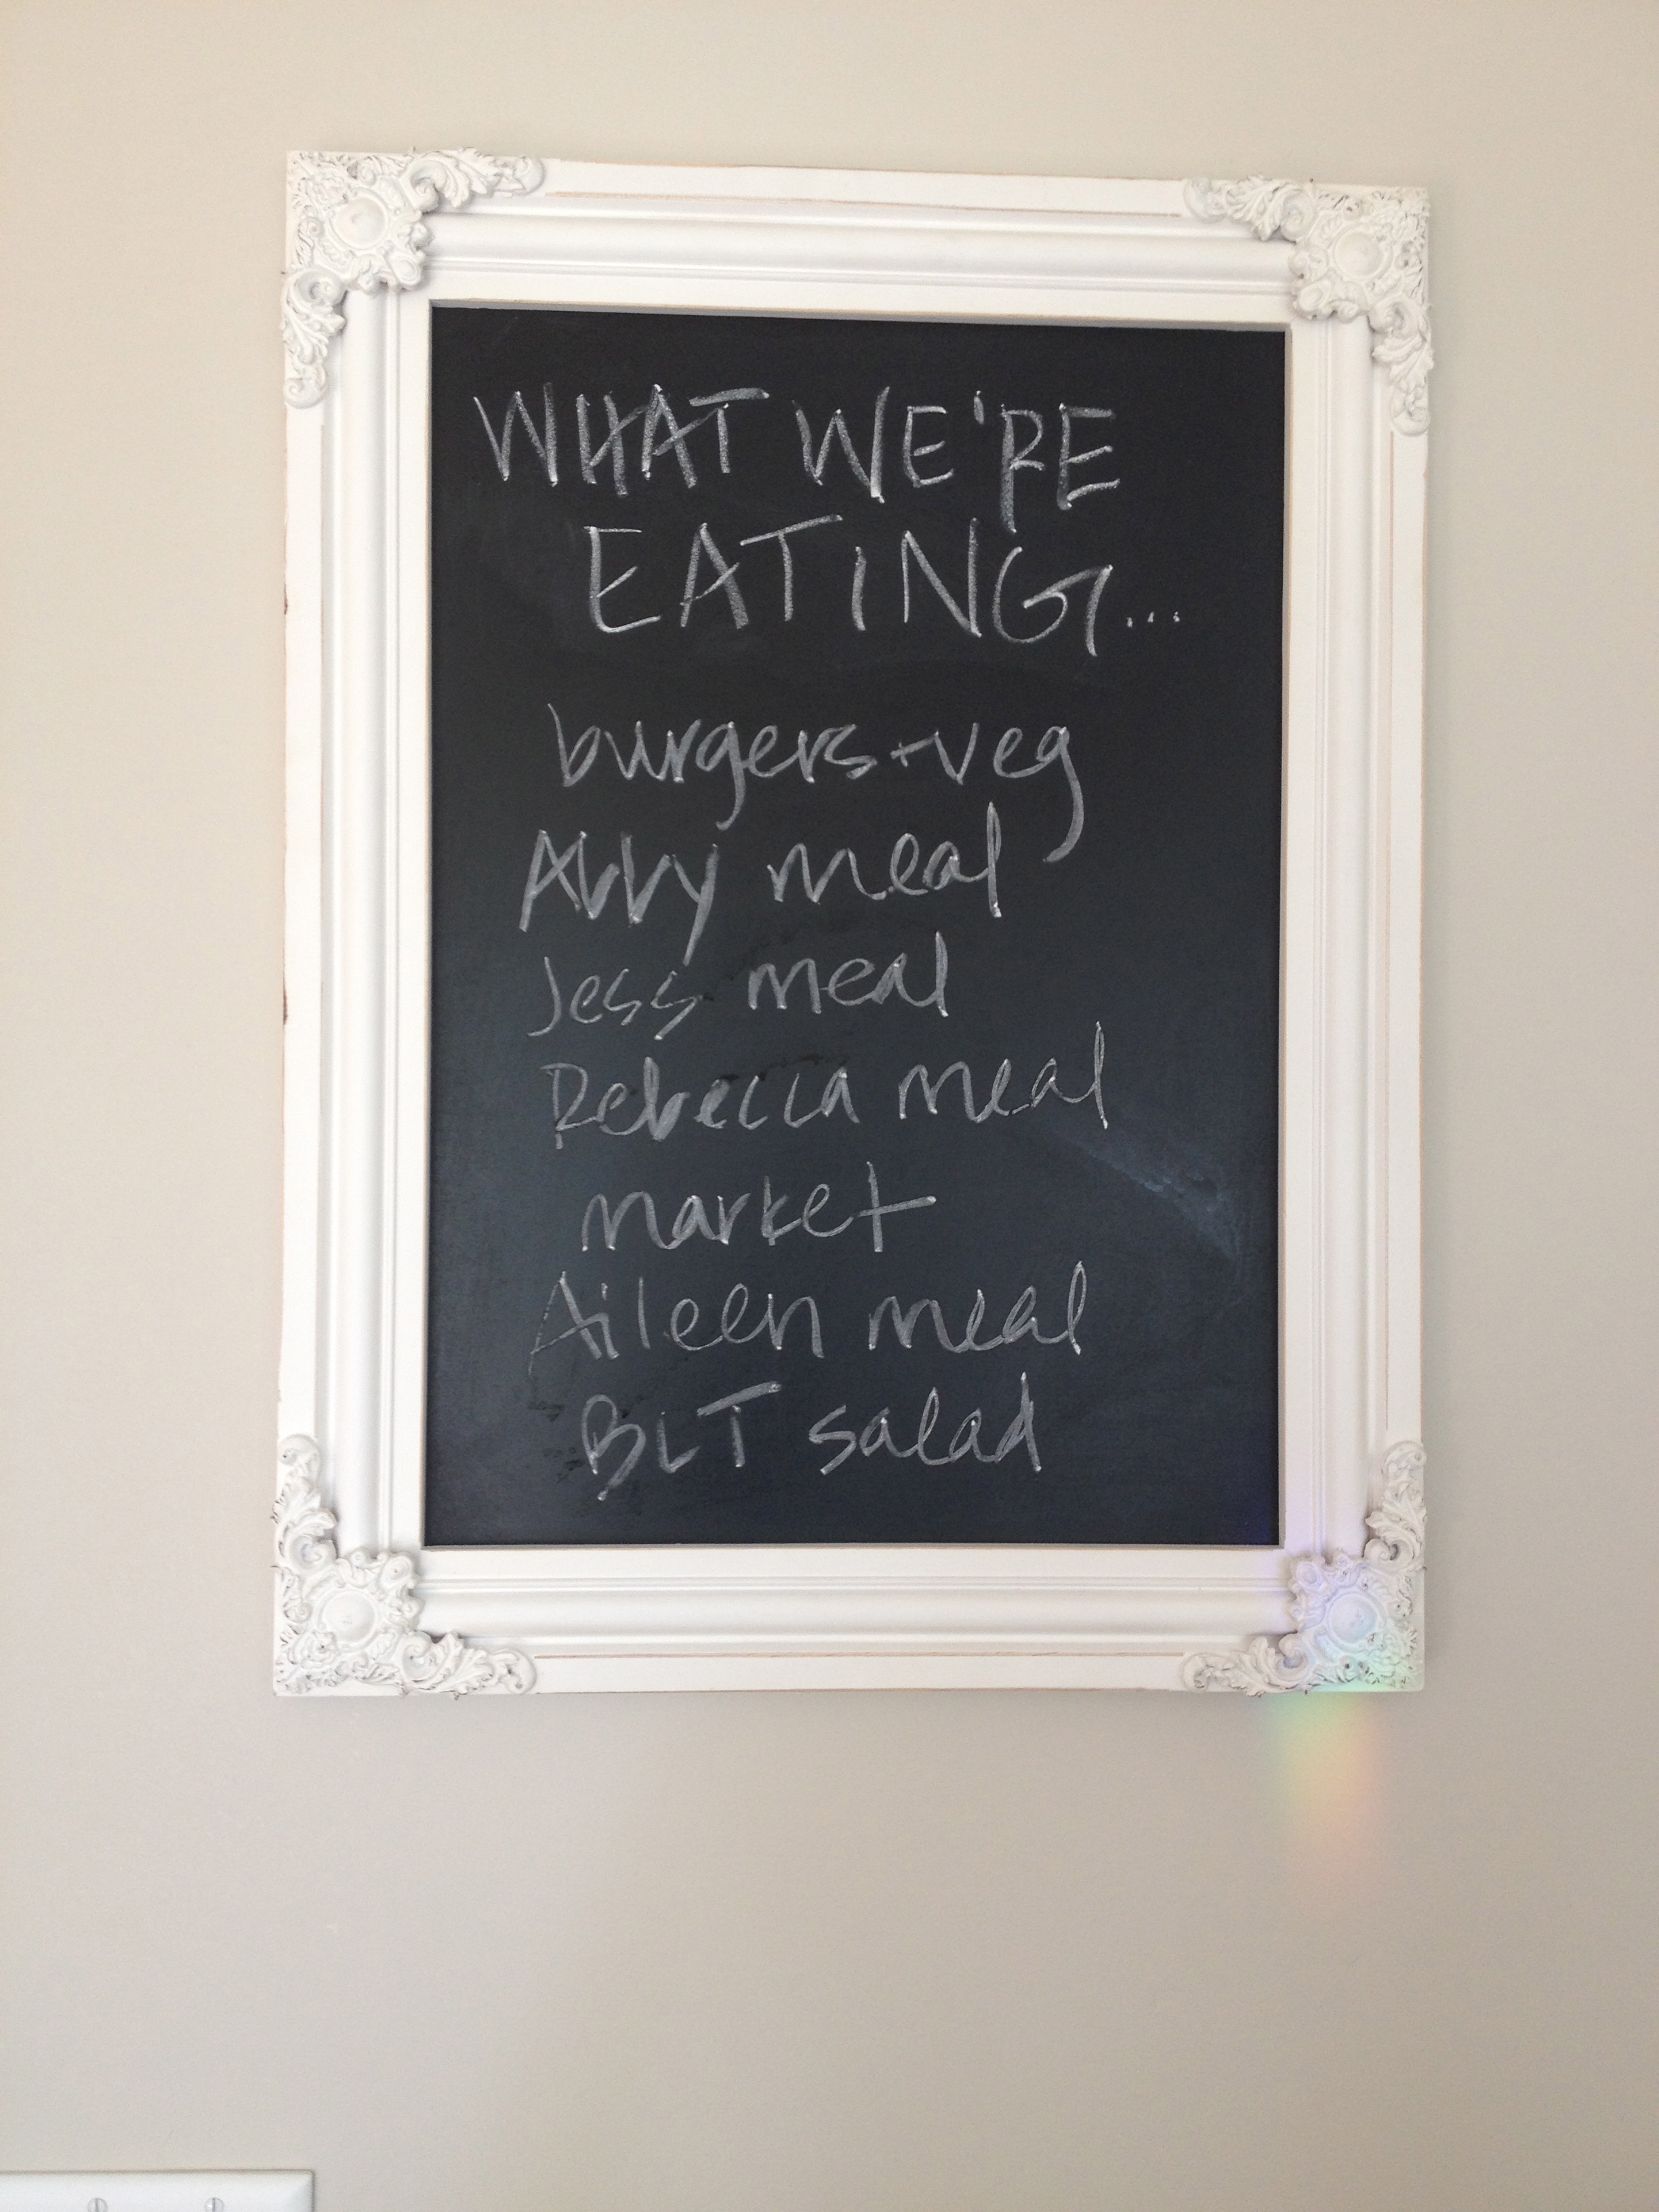 WHAT WE'RE
EATING...
burgers + veg
Abby meal
Jess meal
Rebecca meal
market
Aileen meal
BLT salad